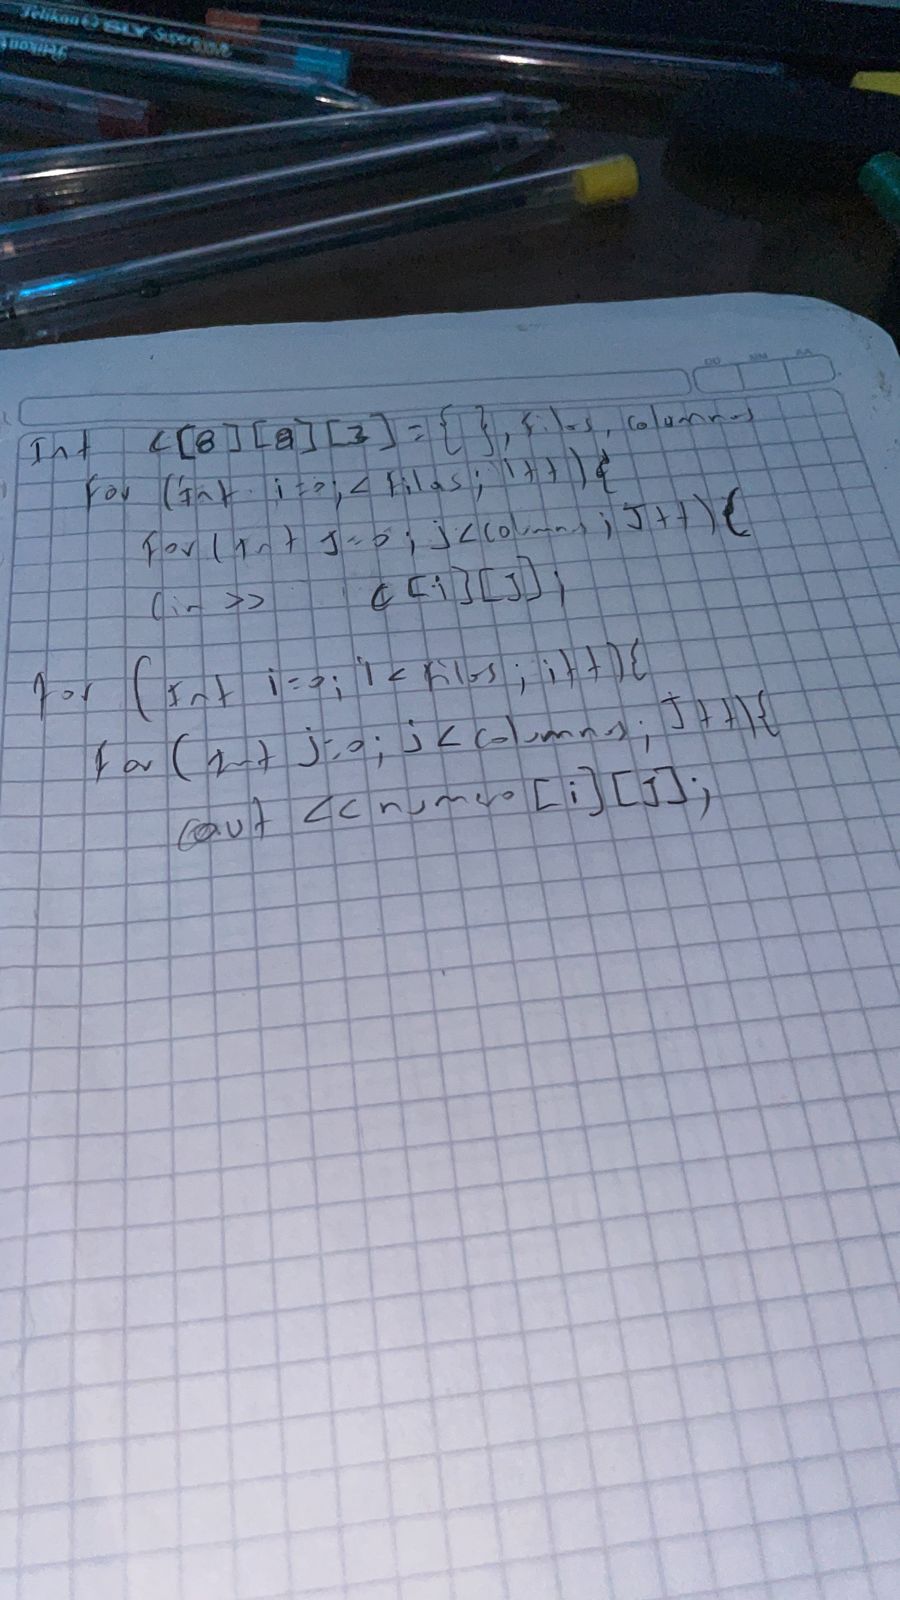 Pelikan
Pelikan
Int c[8][8][3]={ }, filas, columnas
for (int i=0;< filas; i++){
for (int J=0; j<columns; J++){
Cin >> c[i][J];
for (Int i=0; i< filas; i++){
for (Int j=0; j<columns; J++){
cout <<numero[i][J];